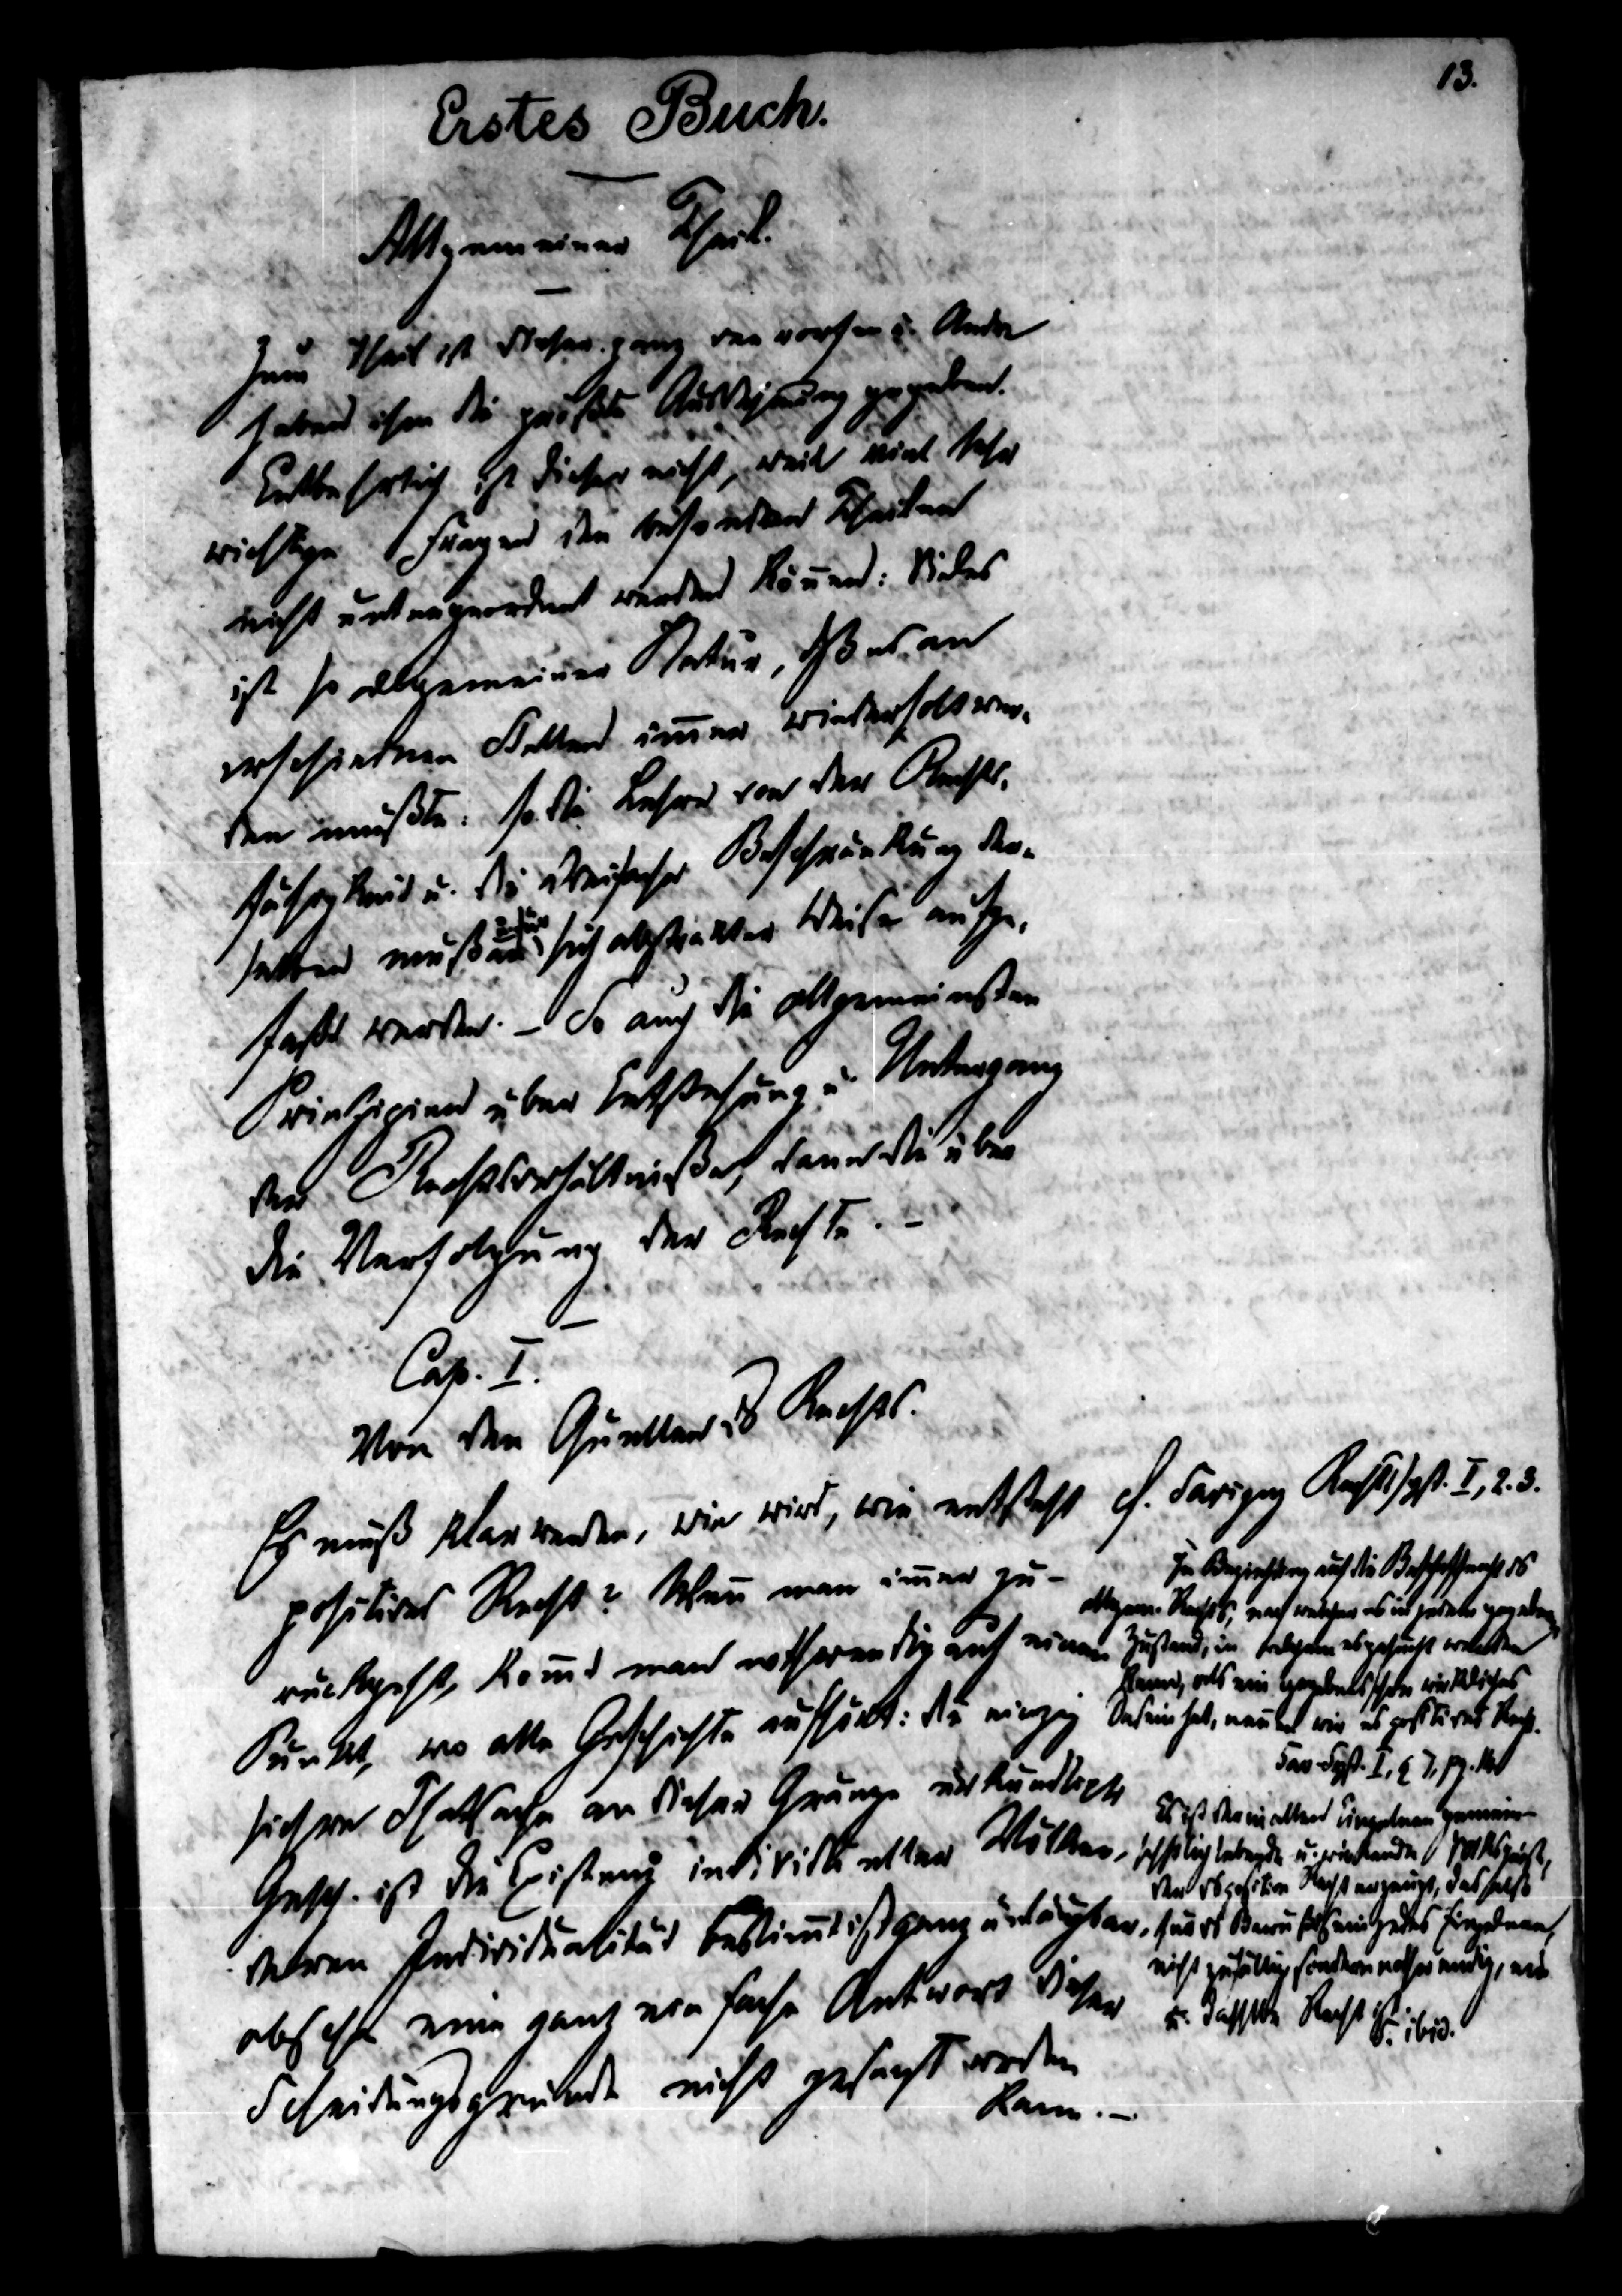 13.
Erstes Buch.
Allgemeiner Theil.
Zum Theil ist dieser ganz verworfen u. Andre
haben ihm die größte Ausdehnung gegeben.
Entbehrlich ist dieser nicht, weil viel sehr
wichtige Fragen den besondren Theilen
nicht untergeordnet werden köñen: Vieles
ist so allgemeiner Natur, dß es an
verschiednen Stellen im̃er wiederholt wer-
den müßte: so die Lehre von der Rechts-
fähigkeit u. die dreifache Beschränkung der-
selben muß an u. für sich abstrakter Weise aufge-
faßt werden. – So auch die allgemeinsten
Prinzipien über Entstehung u. Untergang
der Rechtsverhältniße, dann die über
die Verfolgung der Rechte. –
Cap. I.
Von den Quellen ds Rechts.
Es muß klar werden, wie wird, wie entsteht
positives Recht? Weñ man im̃er zu-
rückgeht, kom̃t man nothwendig auf einen
Punkt, wo alle Geschichte aufhört: die einzig
sichre Thatsache an dieser Gränze urkundlicher
Gesch. ist die Existenz individueller Völker,
deren Individualität bestim̃t ist ganz unläugbar,
obschon eine ganz einfache Antwort dieser
Scheidungsgründe nicht gesagt werden
kann. –
cf. Savigny Rechtssyst. I, 2. 3.
In Beziehung auf die Beschaffenheit ds
allgem. Rechts, nach welcher es in jedem gegebenen
Zustand, in welchem es gesucht werden
kann, als ein gegebenes schon wirkliches
Dasein hat, neñen wir es positives Recht.
Sav. Syst. I, § 7, pg. 14
Es ist der in allen Einzelnen gemein-
schaftlich lebende u. wirkende Volksgeist,
der ds positive Recht erzeugt, das selbst
für ds Bewußtsein jedes Einzelnen,
nicht zufällig sondern nothwendig, ein
u. dasselbe Recht ist.
S. ibid.